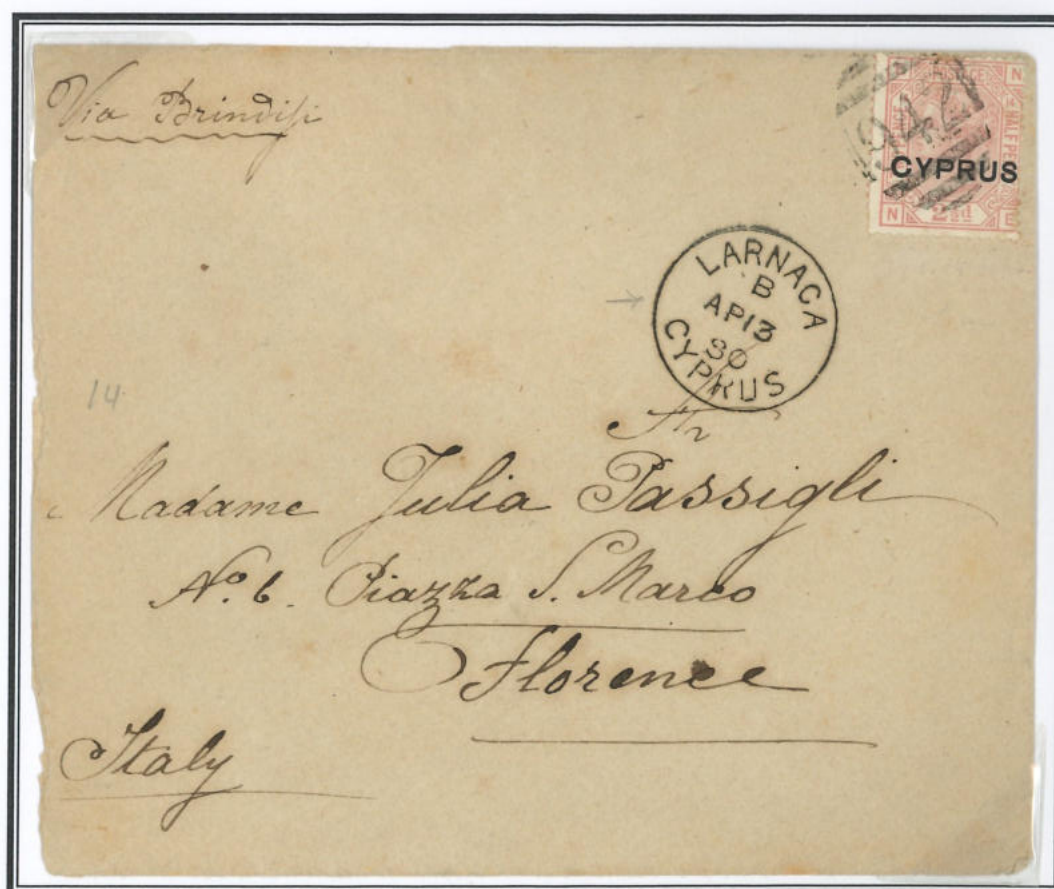 Via Brindisi
942
N
HALF PE
CYPRUS
N 2½d
LARNACA
B
AP 13
80
CYPRUS
14
Madame Julia Passigli
No. 6. Piazza S. Marco
Florence
Italy